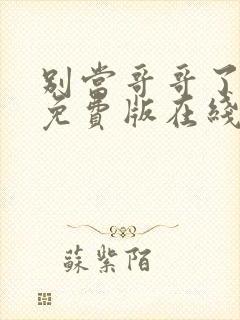 别当哥哥了
免費版在綫
蘇紫陌